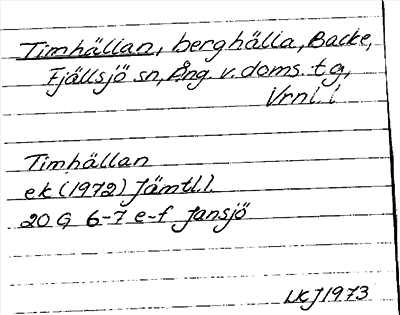 Timhällan, berghälla, Backe,
Fjällsjö sn, Ång. v. doms. tg,
Vrnl. l
Timhällan
ek (1972) Jämtl. l.
20 G 6-7 e-f Jansjö
LKJ 1973